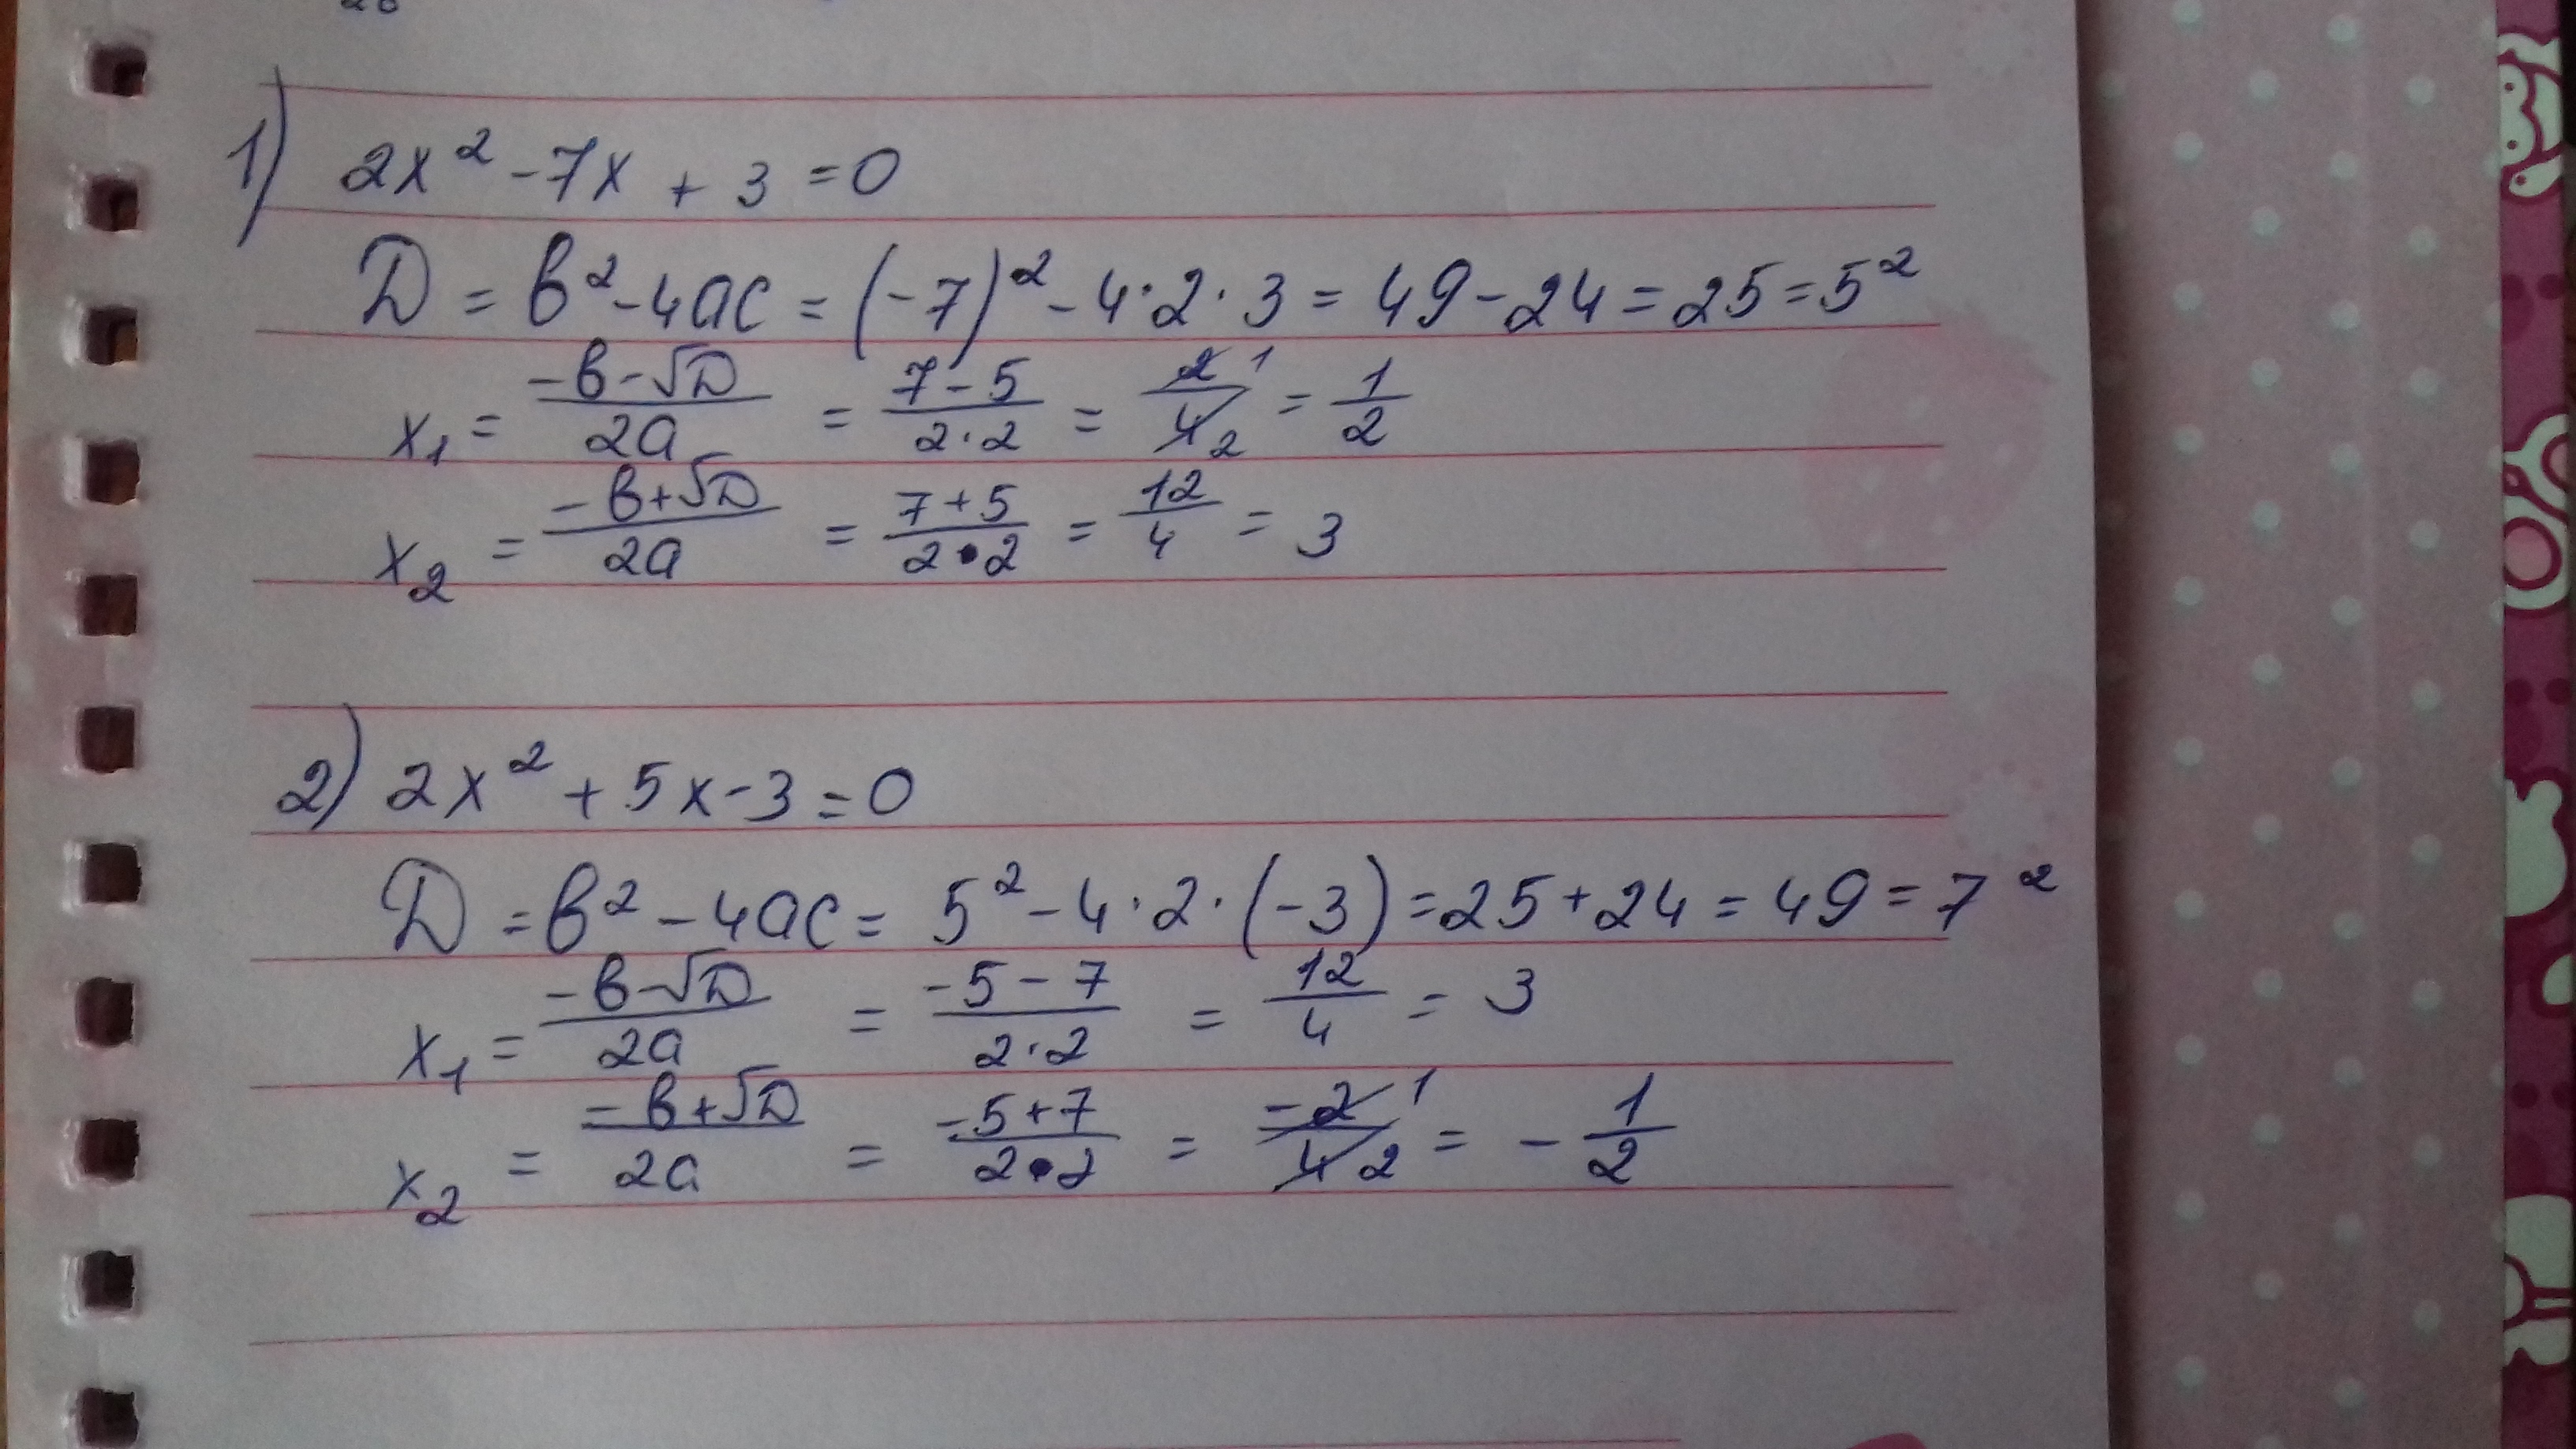 1) 2x² - 7x + 3 = 0
D = b² - 4ac = (-7)² - 4·2·3 = 49 - 24 = 25 = 5²
x₁ = (-b - √D)/(2a) = (7 - 5)/(2·2) = 2 1/4 2 = 1/2
x₂ = (-b + √D)/(2a) = (7 + 5)/(2·2) = 12/4 = 3
2) 2x² + 5x - 3 = 0
D = b² - 4ac = 5² - 4·2·(-3) = 25 + 24 = 49 = 7²
x₁ = (-b - √D)/(2a) = (-5 - 7)/(2·2) = 12/4 = 3
x₂ = (-b + √D)/(2a) = (-5 + 7)/(2·2) = -2 1/4 2 = -1/2